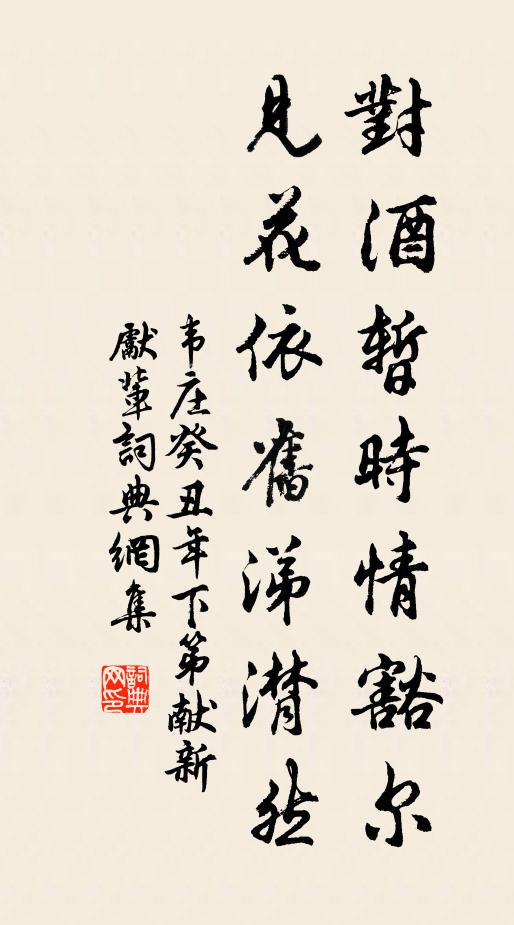 對酒暫時情豁尔
見花依舊涕潸然
韦庄癸丑年下第献新
獻輩詞典網集
詞典网印